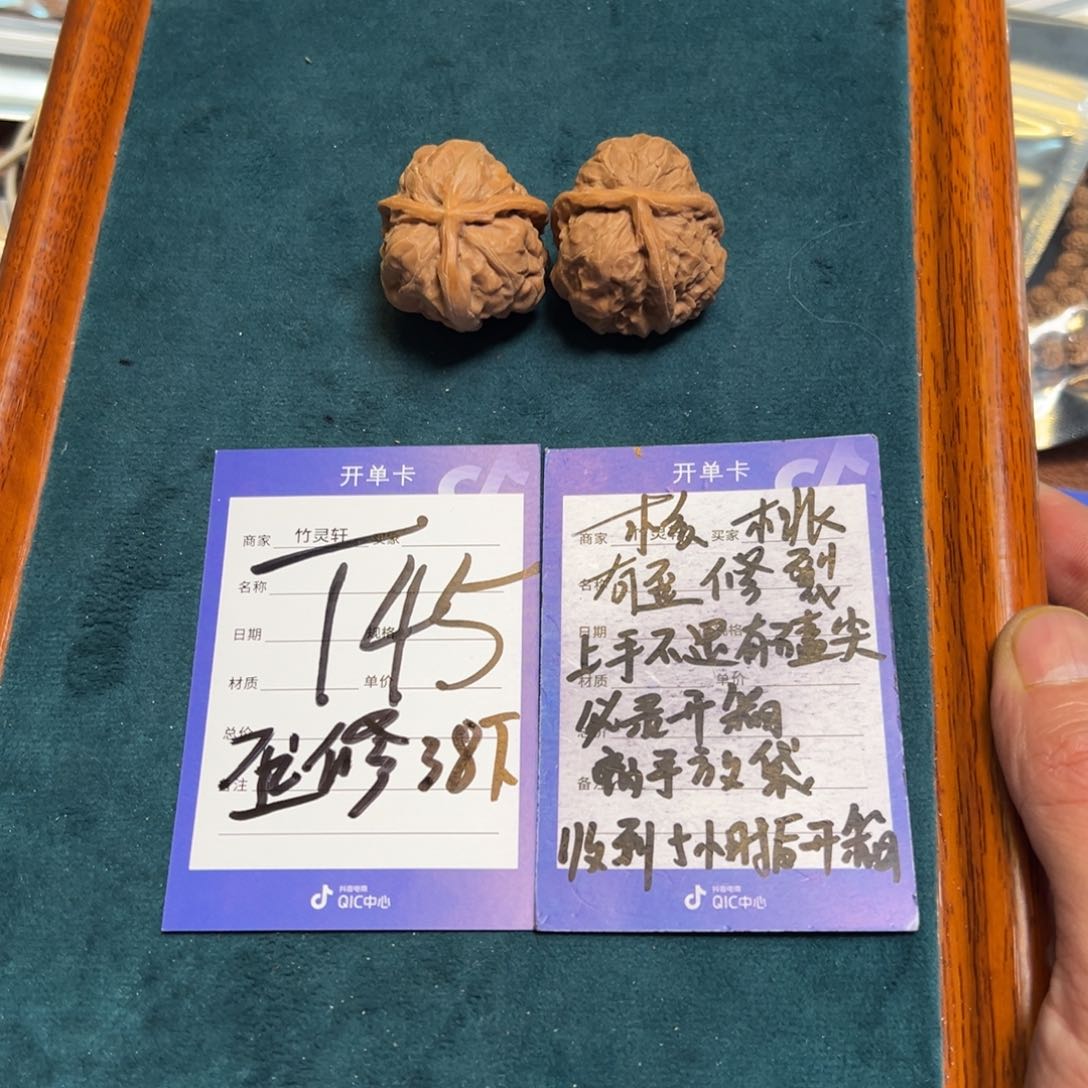 开单卡
商家 竹灵轩 买家
名称
T45
日期 规格
材质 单价
总价
歪修 38下
备注
抖音电商
QIC中心
开单卡
商家 买家
核桃
名称
有歪修裂
日期 规格
上手不退有磕尖
材质 单价
必录开箱
备注
怕手放袋
收到十小时后开箱
抖音电商
QIC中心